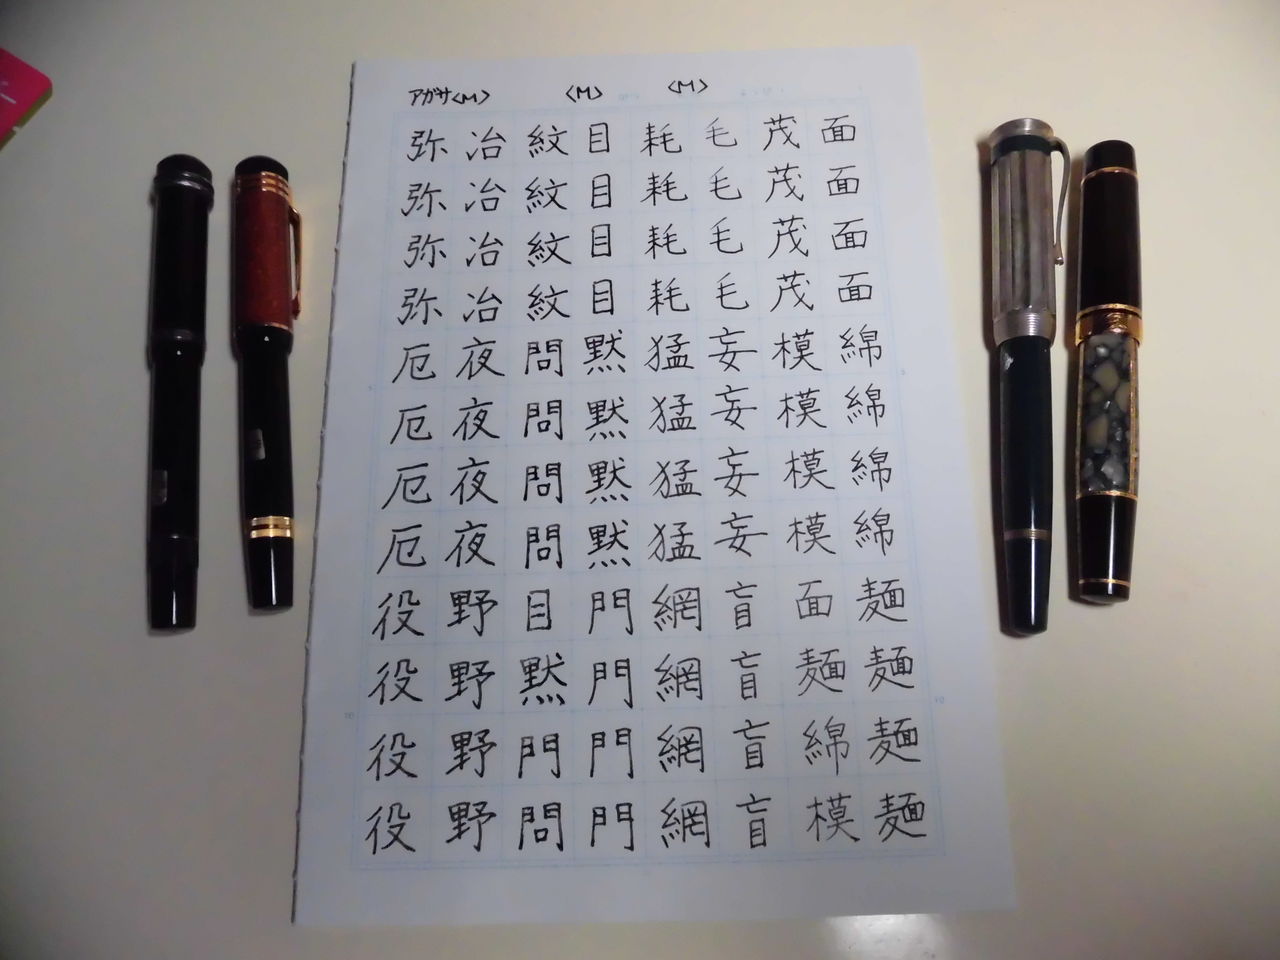 アガサ<M> <M> <M>
面面面面綿綿綿綿麺麺麺麺
茂茂茂茂模模模模面麺綿模
毛毛毛毛妄妄妄妄盲盲盲盲
耗耗耗耗猛猛猛猛網網網網
目目目目黙黙黙黙門門門門
紋紋紋紋問問問問目黙門問
冶冶冶冶夜夜夜夜野野野野
弥弥弥弥厄厄厄厄役役役役